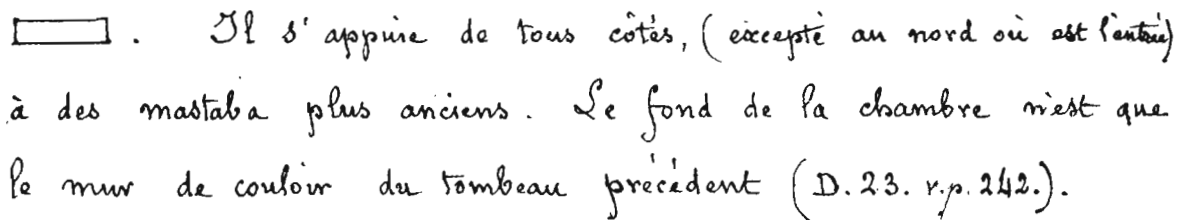 . Il s'appuie de tous côtés, (excepté au nord où est l'entrée)
à des mastaba plus anciens. Le fond de la chambre n'est que
le mur de couloir du tombeau précédent (D. 23. v. p. 242.).